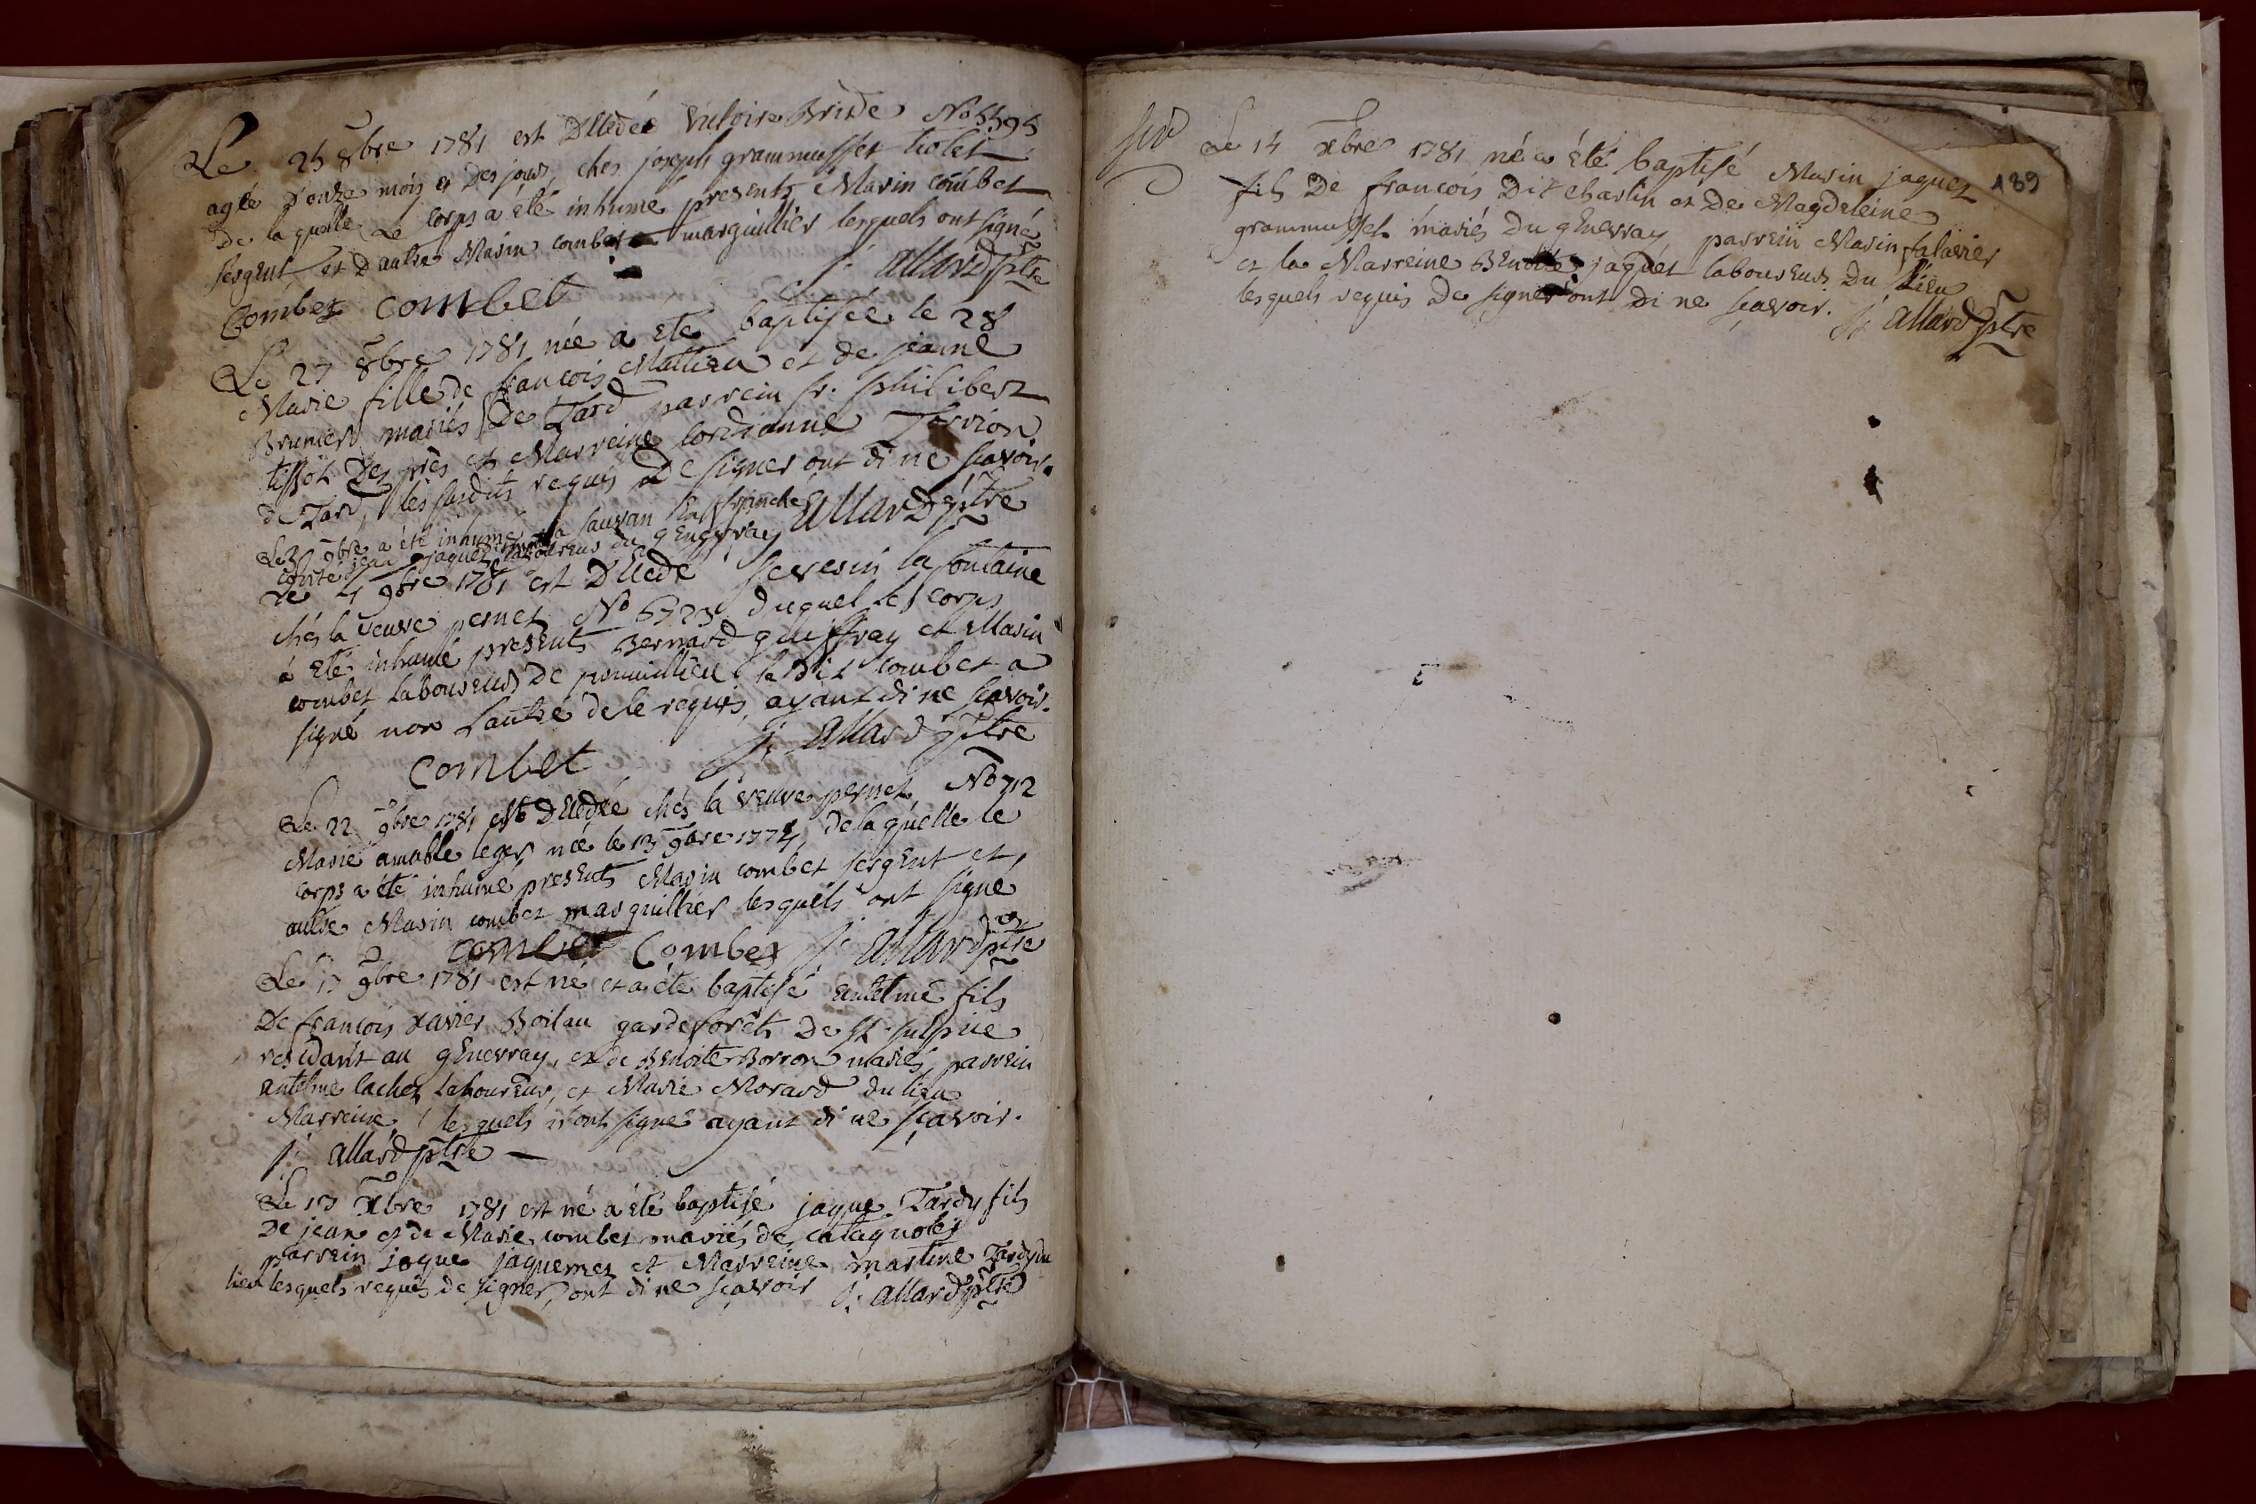 Le 25 8bre 1781 est Décédée victoire Bride No 5595
agée d'onze mois et Des jours, ches joseph grammusset tiolet
de laquelle Le corps a été inhumé presents Marin combet
sergent et D'autre Marin combet marguillier lesquels ont signé
Combet combet j: allard ptre
Le 27 8bre 1781 née a Eté baptisée le 28
Marie fille de francois Mathieu et de jeanne
Brunier mariés De Tard parrein sr. philibert
tissot Des près et Marreine
de Tard, les susdits requis De signer ont di ne scavoir.
Le 9bre a été inhumé allard ptre
jaquet laboureur du gEnevray
Le 4 9bre 1781 est Décédé severin la fontaine
chés la veuve pernet No 6723 duquel le corps
à Eté inhumé presEnts Bernard et Marin
combet LabourEurs De le dit combet a
signé non L'autre de le requis ayant di ne scavoir.
combet j: allard ptre
Le 22 9bre 1781 est Décédée chés la veuve pernet No 712
Marie amable leger née le 13 9bre 1774, de laquelle le
corps a été inhumé, presEnts Marin combet sergEnt et,
autre Marin combet marguillier lesquels ont signé
combet Combet j: allard ptre
Le 17 9bre 1781 est né et a été baptisé antelme fils
De francois xavier Boilau gardeforêts De st. sulpice
residant au gEnevray, et de BEnoite Borron mariés, parrein
antelme lachez LabourEur, et Marie Morard du lieu
Marreine, lesquels n'ont signé ayant di ne sçavoir.
j: allard ptre
Le 17 Xbre 1781 est né a été baptisé jaque Tardy fils
De jean et de Marie combet mariés de catagnolès
parrein jaque jaquemet et Marreine martine Tardy du
lieu lesquels requis de signer, ont di ne scavoir j: allard ptre
189
Le 14 xbre 1781 né a Été baptisé Marin jaquet
fils De francois Dit charlin et De Magdeleine
grammusset mariés Du gEnevray parrein Marin falavier
et la Marreine BEnoite jaquet labourEurs Du lieu
lesquels requis De signer ont di ne sçavoir. j: allard ptre